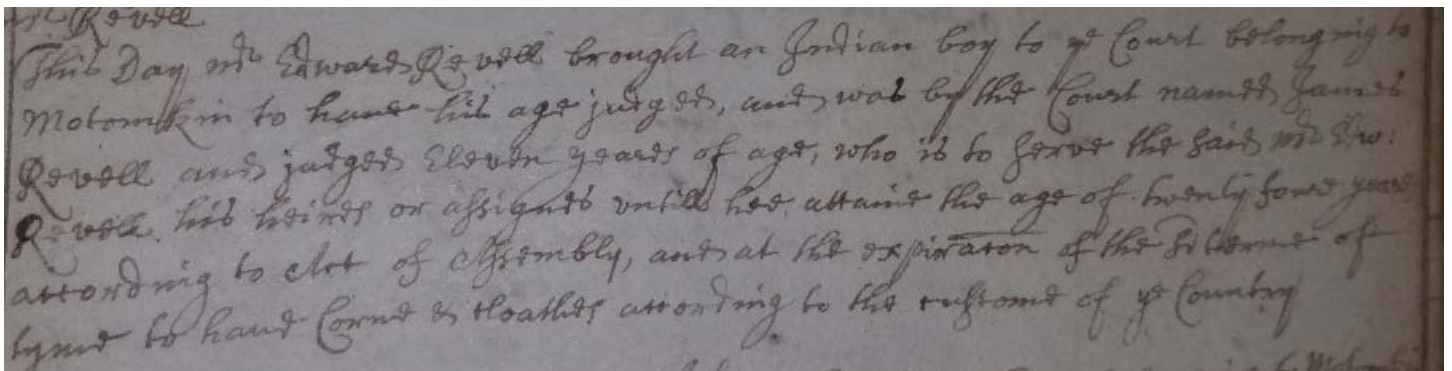 Mr Revell
This Day mr Edward Revell brought an Indian boy to ye Court belonging to
Motomkin to have his age judged, and was by the Court named James
Revell and judged Eleven yeares of age, who is to serve the said mr Edw:
Revell his heires or assignes untill hee attaine the age of twenty foure yeares
according to Act of Assembly, and at the expiraton of the sd terme of
tyme to have Corne & cloathes according to the custome of ye Country
to Motomkin